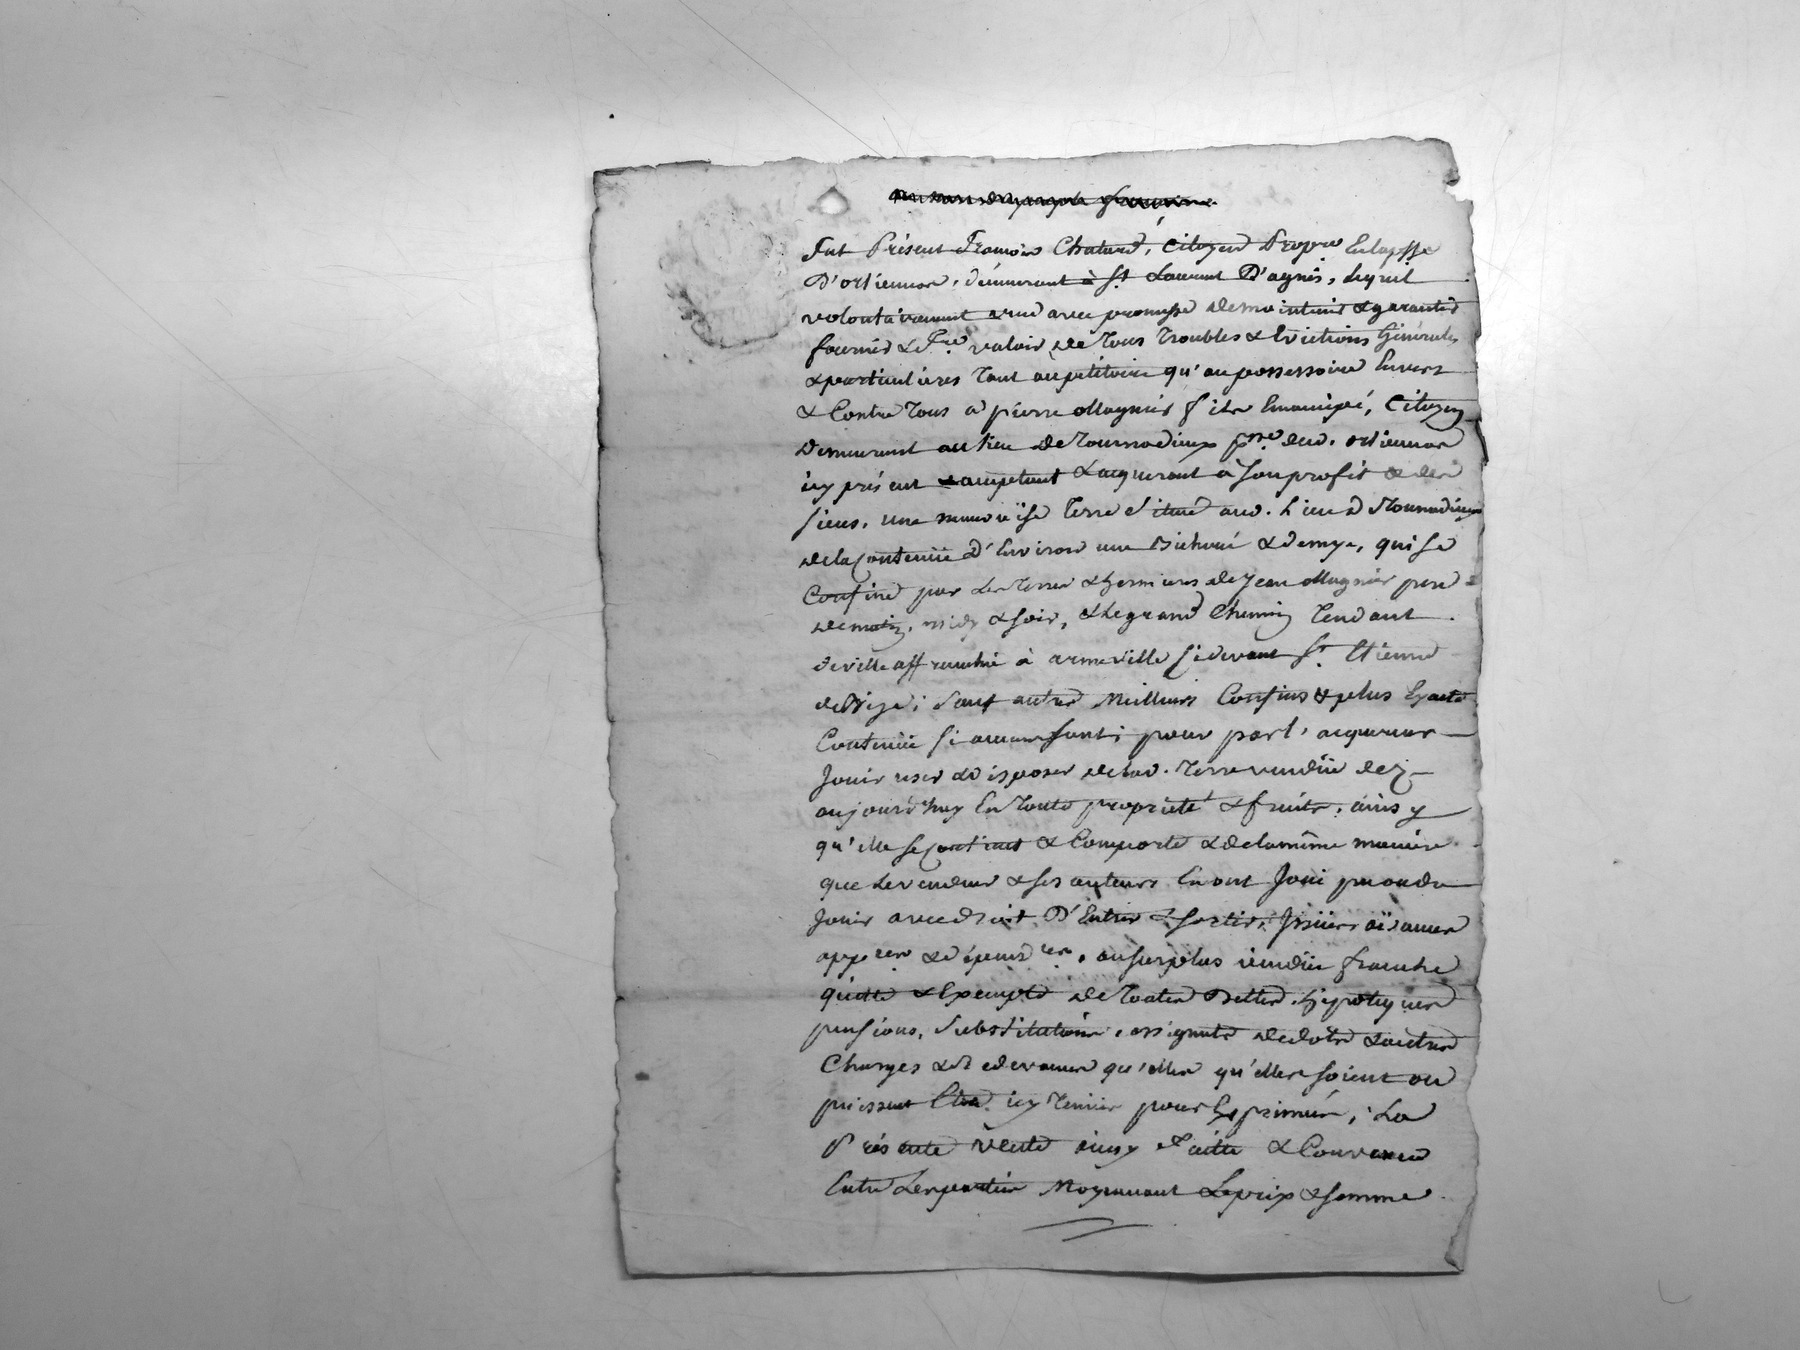 Fut Présent François Chatard, Citoyen Propre En la psse
D'orlienas, demeurant à St Laurent D'agnis, lequel
volontairement avec promesse de maintenir & garantir
fournir & fre valoir de Tous Troubles & Evictions Générales
& particulieres Tant au pétitoire qu'au possessoire Envers
& Contre Tous a pierre Magnin fils Emancipé, Citoyen
Demeurant au lieu de Tournadieux psse dud. orlienas
icy présent acceptant & acquerant à son profit & des
siens, une terre située aud. Lieu de
de la Contenüe D'Environ une Bicherée & demye, qui se
Confine par les Terres & de Jean Magnin pere
de matin, midy & soir, & le grand Chemin Tendant
de ville affranchie à armeville Cidevant St. Etienne
; Sauf autres Meilleurs Confins & plus Exacte
Contenüe si aucuns sont; pour par l'acquereur
Jouir user & disposer de lad. Terre vendüe dez
aujourd'huy En Toute proprieté & fruits, ainsy
qu'elle se Contient & Comporte & de la même maniere
que le vendeur & ses auteurs En ont Joui pu ou du
Jouir avec droit D'Entrer & sortir, aisances
appces & dépendces, au surplus vendüe franche
quitte & Exempte de Toutes Dettes, hypoteques
pensions, Substitution, assignats de dots & autres
Charges & Redevances qu'elles qu'elles soient ou
puissent Etre icy Tenües pour Exprimées, La
Présente vente ainsy faitte & Convenue
Entre Les parties Moyennant Le prix & somme